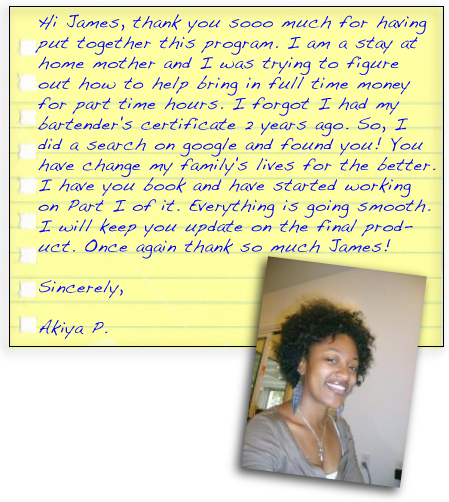 Hi James, thank you sooo much for having
put together this program. I am a stay at
home mother and I was trying to figure
out how to help bring in full time money
for part time hours. I forgot I had my
bartender's certificate 2 years ago. So, I
did a search on google and found you! You
have change my family's lives for the better.
I have you book and have started working
on Part I of it. Everything is going smooth.
I will keep you update on the final prod-
uct. Once again thank so much James!
Sincerely,
Akiya P.